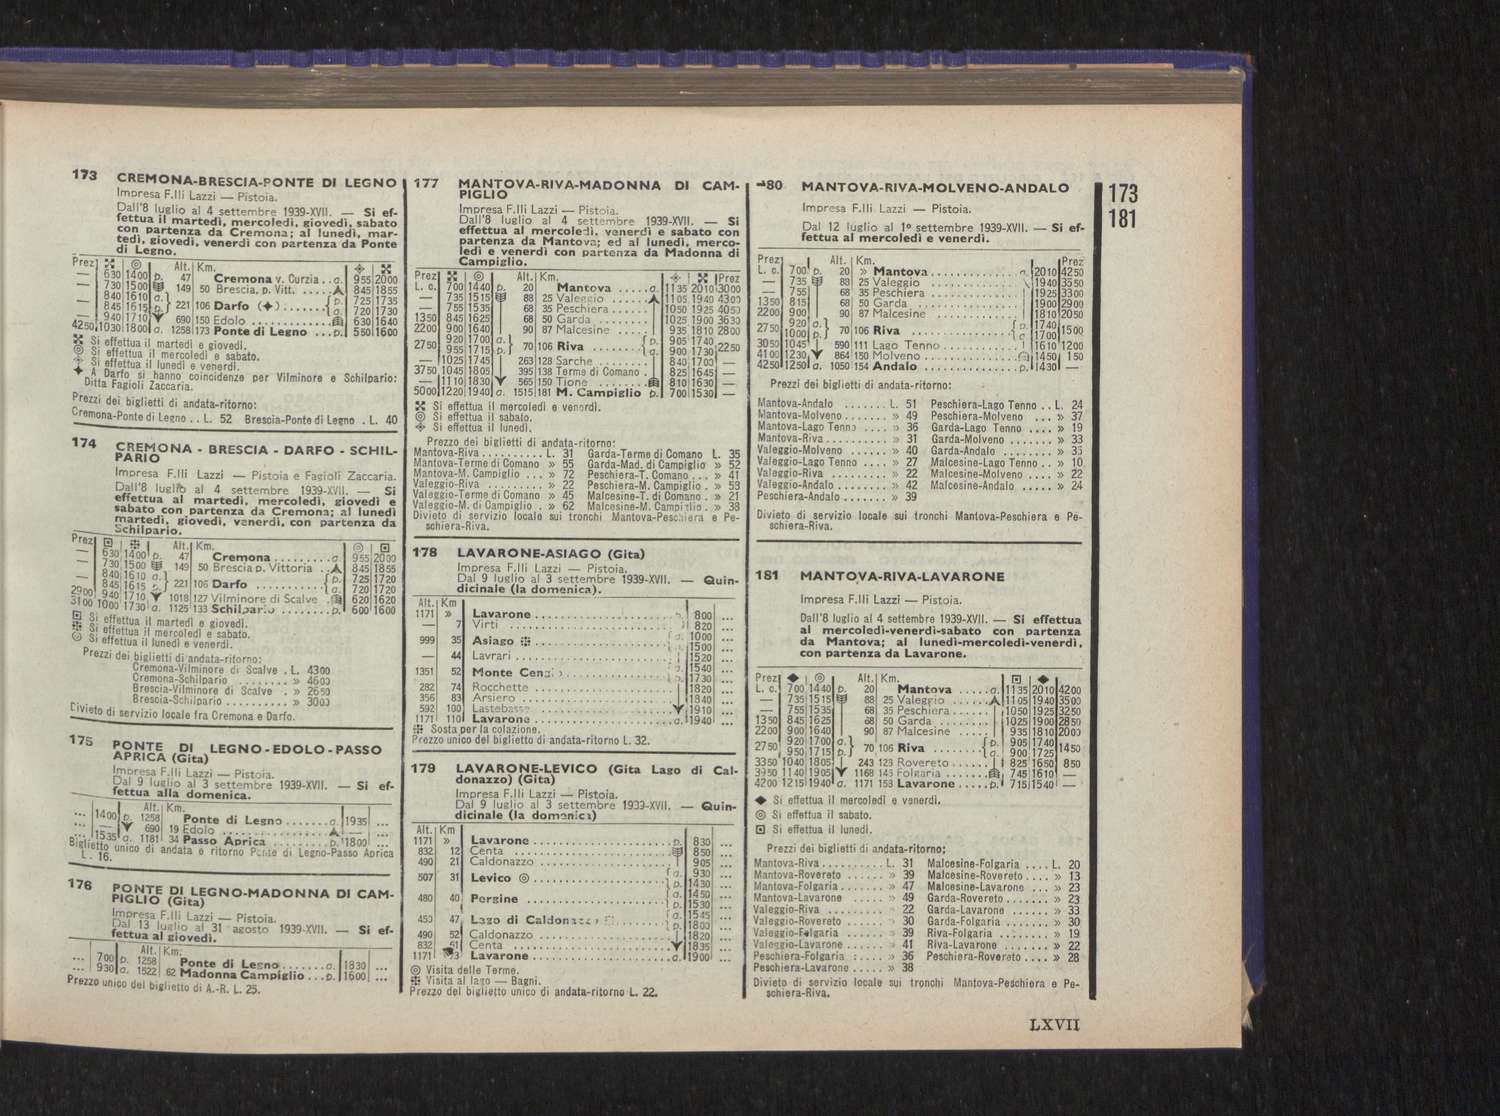 173 CREMONA-BRESCIA-PONTE DI LEGNO
Impresa F.lli Lazzi — Pistoia.
Dall'8 luglio al 4 settembre 1939-XVII. — Si ef-
fettua il martedì, mercoledì, giovedì, sabato
con partenza da Cremona; al lunedì, mar-
tedì, giovedì, venerdì con partenza da Ponte
di Legno.
Prez Alt. Km.
— 630 1400 p. 47 Cremona v. Curzia . . a. 955 2000
— 730 1500 149 50 Brescia p. Vitt. . . . . . 845 1855
— 840 1610 a. 221 106 Darfo (✦) . . . . . . . p. 725 1735
— 845 1615 p. a. 720 1730
— 940 1710 690 150 Edolo . . . . . . . . . . . . 630 1640
4250 1030 1800 a. 1258 173 Ponte di Legno . . . p. 550 1600
Si effettua il martedì e giovedì.
◎ Si effettua il mercoledì e sabato.
Si effettua il lunedì e venerdì.
✦ A Darfo si hanno coincidenze per Vilminore e Schilpario:
Ditta Fagioli Zaccaria.
Prezzi dei biglietti di andata-ritorno:
Cremona-Ponte di Legno . . L. 52 Brescia-Ponte di Legno . L. 40
174 CREMONA - BRESCIA - DARFO - SCHIL-
PARIO
Impresa F.lli Lazzi — Pistoia e Fagioli Zaccaria.
Dall'8 luglio al 4 settembre 1939-XVII. — Si
effettua al martedì, mercoledì, giovedì e
sabato con partenza da Cremona; al lunedì
martedì, giovedì, venerdì, con partenza da
Schilpario.
Prez Alt. Km.
— 630 1400 p. 47 Cremona . . . . . . . . . a 955 2000
— 730 1500 149 50 Brescia p. Vittoria . . 845 1855
— 840 1610 a. 221 106 Darfo . . . . . . . . . . . p. 725 1720
— 845 1615 p. a. 720 1720
2900 940 1710 1018 127 Vilminore di Scalve . 620 1620
3100 1000 1730 a. 1125 133 Schilpario . . . . . . . . p. 600 1600
Si effettua il martedì e giovedì.
Si effettua il mercoledì e sabato.
Si effettua il lunedì e venerdì.
Prezzi dei biglietti di andata-ritorno:
Cremona-Vilminore di Scalve . L. 4300
Cremona-Schilpario . . . . . . . . » 4600
Brescia-Vilminore di Scalve . » 2650
Brescia-Schilpario . . . . . . . . . . » 3000
Divieto di servizio locale fra Cremona e Darfo.
175 PONTE DI LEGNO-EDOLO-PASSO
APRICA (Gita)
Impresa F.lli Lazzi — Pistoia.
Dal 9 luglio al 3 settembre 1939-XVII. — Si ef-
fettua alla domenica.
Alt. Km.
... 1400 p. 1258 Ponte di Legno . . . . . . . a. 1935 ...
... — 690 19 Edolo . . . . . . . . . . . . . . — ...
... 1535 a. 1181 34 Passo Aprica . . . . . . . . . p. 1800 ...
Biglietto unico di andata e ritorno Ponte di Legno-Passo Aprica
L. 16.
176 PONTE DI LEGNO-MADONNA DI CAM-
PIGLIO (Gita)
Impresa F.lli Lazzi — Pistoia.
Dal 13 luglio al 31 agosto 1939-XVII. — Si ef-
fettua al giovedì.
Alt. Km.
... 700 p. 1258 Ponte di Legno . . . . . . . a. 1830 ...
... 930 a. 1522 62 Madonna Campiglio . . . p. 1600 ...
Prezzo unico del biglietto di A.-R. L. 25.
177 MANTOVA-RIVA-MADONNA DI CAM-
PIGLIO
Impresa F.lli Lazzi — Pistoia.
Dall'8 luglio al 4 settembre 1939-XVII. — Si
effettua al mercoledì, venerdì e sabato con
partenza da Mantova; ed al lunedì, merco-
ledì e venerdì con partenza da Madonna di
Campiglio.
Prez Alt. Km. Prez
L. c. 700 1440 p. 20 Mantova . . . . . a. 1135 2010 3000
— 735 1515 88 25 Valeggio . . . . . . 1105 1940 4300
— 755 1535 68 35 Peschiera . . . . . . 1050 1925 4050
1350 845 1625 68 50 Garda . . . . . . . . 1025 1900 3630
2200 900 1640 90 87 Malcesine . . . . . 935 1810 2800
2750 920 1700 a. 70 106 Riva . . . . . . . . p. 905 1740 2250
955 1715 p. a. 900 1730
— 1025 1745 263 128 Sarche . . . . . . . . 840 1700 —
3750 1045 1805 395 138 Terme di Comano . 825 1645 —
— 1110 1830 565 150 Tione . . . . . . . . 810 1630 —
5000 1220 1940 a. 1515 181 M. Campiglio p. 700 1530 —
Si effettua il mercoledì e venerdì.
◎ Si effettua il sabato.
Si effettua il lunedì.
Prezzo dei biglietti di andata-ritorno:
Mantova-Riva . . . . . . . . . . L. 31 Garda-Terme di Comano L. 35
Mantova-Terme di Comano » 55 Garda-Mad. di Campiglio » 52
Mantova-M. Campiglio . . . » 72 Peschiera-T. Comano . . . » 41
Valeggio-Riva . . . . . . . . . » 22 Peschiera-M. Campiglio . » 53
Valeggio-Terme di Comano » 45 Malcesine-T. di Comano . » 21
Valeggio-M. di Campiglio . » 62 Malcesine-M. Campiglio . » 38
Divieto di servizio locale sui tronchi Mantova-Peschiera e Pe-
schiera-Riva.
178 LAVARONE-ASIAGO (Gita)
Impresa F.lli Lazzi — Pistoia.
Dal 9 luglio al 3 settembre 1939-XVII. — Quin-
dicinale (la domenica).
Alt. Km
1171 » Lavarone . . . . . . . . . . . . . 800 ...
— 7 Virti . . . . . . . . . . . . . 820 ...
999 35 Asiago . . . . . . . . . . . . . a. 1000 ...
1500 ...
— 44 Lavrari . . . . . . . . . . . . . 1520 ...
1351 52 Monte Cengio . . . . . . . . . a. 1540 ...
p. 1730 ...
282 74 Rocchette . . . . . . . . . . . . . 1820 ...
356 83 Arsiero . . . . . . . . . . . . . 1840 ...
592 100 Lastebasse . . . . . . . . . . . 1910 ...
1171 110 Lavarone . . . . . . . . . . . . . a. 1940 ...
Sosta per la colazione.
Prezzo unico del biglietto di andata-ritorno L. 32.
179 LAVARONE-LEVICO (Gita Lago di Cal-
donazzo) (Gita)
Impresa F.lli Lazzi — Pistoia.
Dal 9 luglio al 3 settembre 1939-XVII. — Quin-
dicinale (la domenica)
Alt. Km
1171 » Lavarone . . . . . . . . . . . . . p. 830 ...
832 12 Centa . . . . . . . . . . . . . 850 ...
490 21 Caldonazzo . . . . . . . . . . . 905 ...
507 31 Levico ◎ . . . . . . . . . . . . . a. 930 ...
p. 1430 ...
480 40 Pergine . . . . . . . . . . . . . a. 1450 ...
p. 1530 ...
450 47 Lago di Caldonazzo . . . a. 1545 ...
p. 1800 ...
490 52 Caldonazzo . . . . . . . . . . . 1820 ...
832 61 Centa . . . . . . . . . . . . . 1835 ...
1171 73 Lavarone . . . . . . . . . . . . . a. 1900 ...
◎ Visita delle Terme.
Visita al lago — Bagni.
Prezzo del biglietto unico di andata-ritorno L. 22.
80 MANTOVA-RIVA-MOLVENO-ANDALO
Impresa F.lli Lazzi — Pistoia.
Dal 12 luglio al 1º settembre 1939-XVII. — Si ef-
fettua al mercoledì e venerdì.
Prez Alt. Km. Prez
L. c. 700 p. 20 » Mantova . . . . . . . . . . . a. 2010 4250
— 735 88 25 Valeggio . . . . . . . . . . . 1940 3550
— 755 68 35 Peschiera . . . . . . . . . . . 1925 3300
1350 815 68 50 Garda . . . . . . . . . . . . . 1900 2900
2200 900 90 87 Malcesine . . . . . . . . . . . 1810 2050
2750 920 a. 70 106 Riva . . . . . . . . . . . . . p. 1740 1500
1000 p. a. 1700
3050 1045 590 111 Lago Tenno . . . . . . . . . 1610 1200
4100 1230 864 150 Molveno . . . . . . . . . . . 1450 150
4250 1250 a. 1050 154 Andalo . . . . . . . . . . . . . p. 1430 —
Prezzi dei biglietti di andata-ritorno:
Mantova-Andalo . . . . . . . L. 51 Peschiera-Lago Tenno . . L. 24
Mantova-Molveno . . . . . . . » 49 Peschiera-Molveno . . . » 37
Mantova-Lago Tenno . . . . » 36 Garda-Lago Tenno . . . . » 19
Mantova-Riva . . . . . . . . . . » 31 Garda-Molveno . . . . . . . » 33
Valeggio-Molveno . . . . . . » 40 Garda-Andalo . . . . . . . . » 35
Valeggio-Lago Tenno . . . . » 27 Malcesine-Lago Tenno . . » 10
Valeggio-Riva . . . . . . . . . » 22 Malcesine-Molveno . . . . » 22
Valeggio-Andalo . . . . . . . . » 42 Malcesine-Andalo . . . . . » 24
Peschiera-Andalo . . . . . . . » 39
Divieto di servizio locale sui tronchi Mantova-Peschiera e Pe-
schiera-Riva.
181 MANTOVA-RIVA-LAVARONE
Impresa F.lli Lazzi — Pistoia.
Dall'8 luglio al 4 settembre 1939-XVII. — Si effettua
al mercoledì-venerdì-sabato con partenza
da Mantova; al lunedì-mercoledì-venerdì,
con partenza da Lavarone.
Prez ◆ ◎ Alt. Km. ⊡ ◆
L. c. 700 1440 p. 20 Mantova . . . . . a. 1135 2010 4200
— 735 1515 88 25 Valeggio . . . . . . 1105 1940 3500
— 755 1535 68 35 Peschiera . . . . . 1050 1925 3250
1350 845 1625 68 50 Garda . . . . . . . . 1025 1900 2850
2200 900 1640 90 87 Malcesine . . . . . 935 1810 2000
2750 920 1700 a. 70 106 Riva . . . . . . . . p. 905 1740 1450
950 1715 p. a. 900 1725
3350 1040 1805 243 123 Rovereto . . . . . . 825 1650 850
3950 1140 1905 1168 145 Folgaria . . . . . . . 745 1610 —
4200 1215 1940 a. 1171 158 Lavarone . . . . . p. 715 1540 —
◆ Si effettua il mercoledì e venerdì.
◎ Si effettua il sabato.
⊡ Si effettua il lunedì.
Prezzi dei biglietti di andata-ritorno;
Mantova-Riva . . . . . . . . . . L. 31 Malcesine-Folgaria . . . . L. 20
Mantova-Rovereto . . . . . . » 39 Malcesine-Rovereto . . . . » 13
Mantova-Folgaria . . . . . . . » 47 Malcesine-Lavarone . . . » 23
Mantova-Lavarone . . . . . » 49 Garda-Rovereto . . . . . . . » 23
Valeggio-Riva . . . . . . . . . » 22 Garda-Lavarone . . . . . . » 33
Valeggio-Rovereto . . . . . » 30 Garda-Folgaria . . . . . . . » 30
Valeggio-Folgaria . . . . . . » 39 Riva-Folgaria . . . . . . . . . » 19
Valeggio-Lavarone . . . . . » 41 Riva-Lavarone . . . . . . . . » 22
Peschiera-Folgaria . . . . . » 36 Peschiera-Rovereto . . . . » 28
Peschiera-Lavarone . . . . . » 38
Divieto di servizio locale sui tronchi Mantova-Peschiera e Pe-
schiera-Riva.
173
181
LXVII